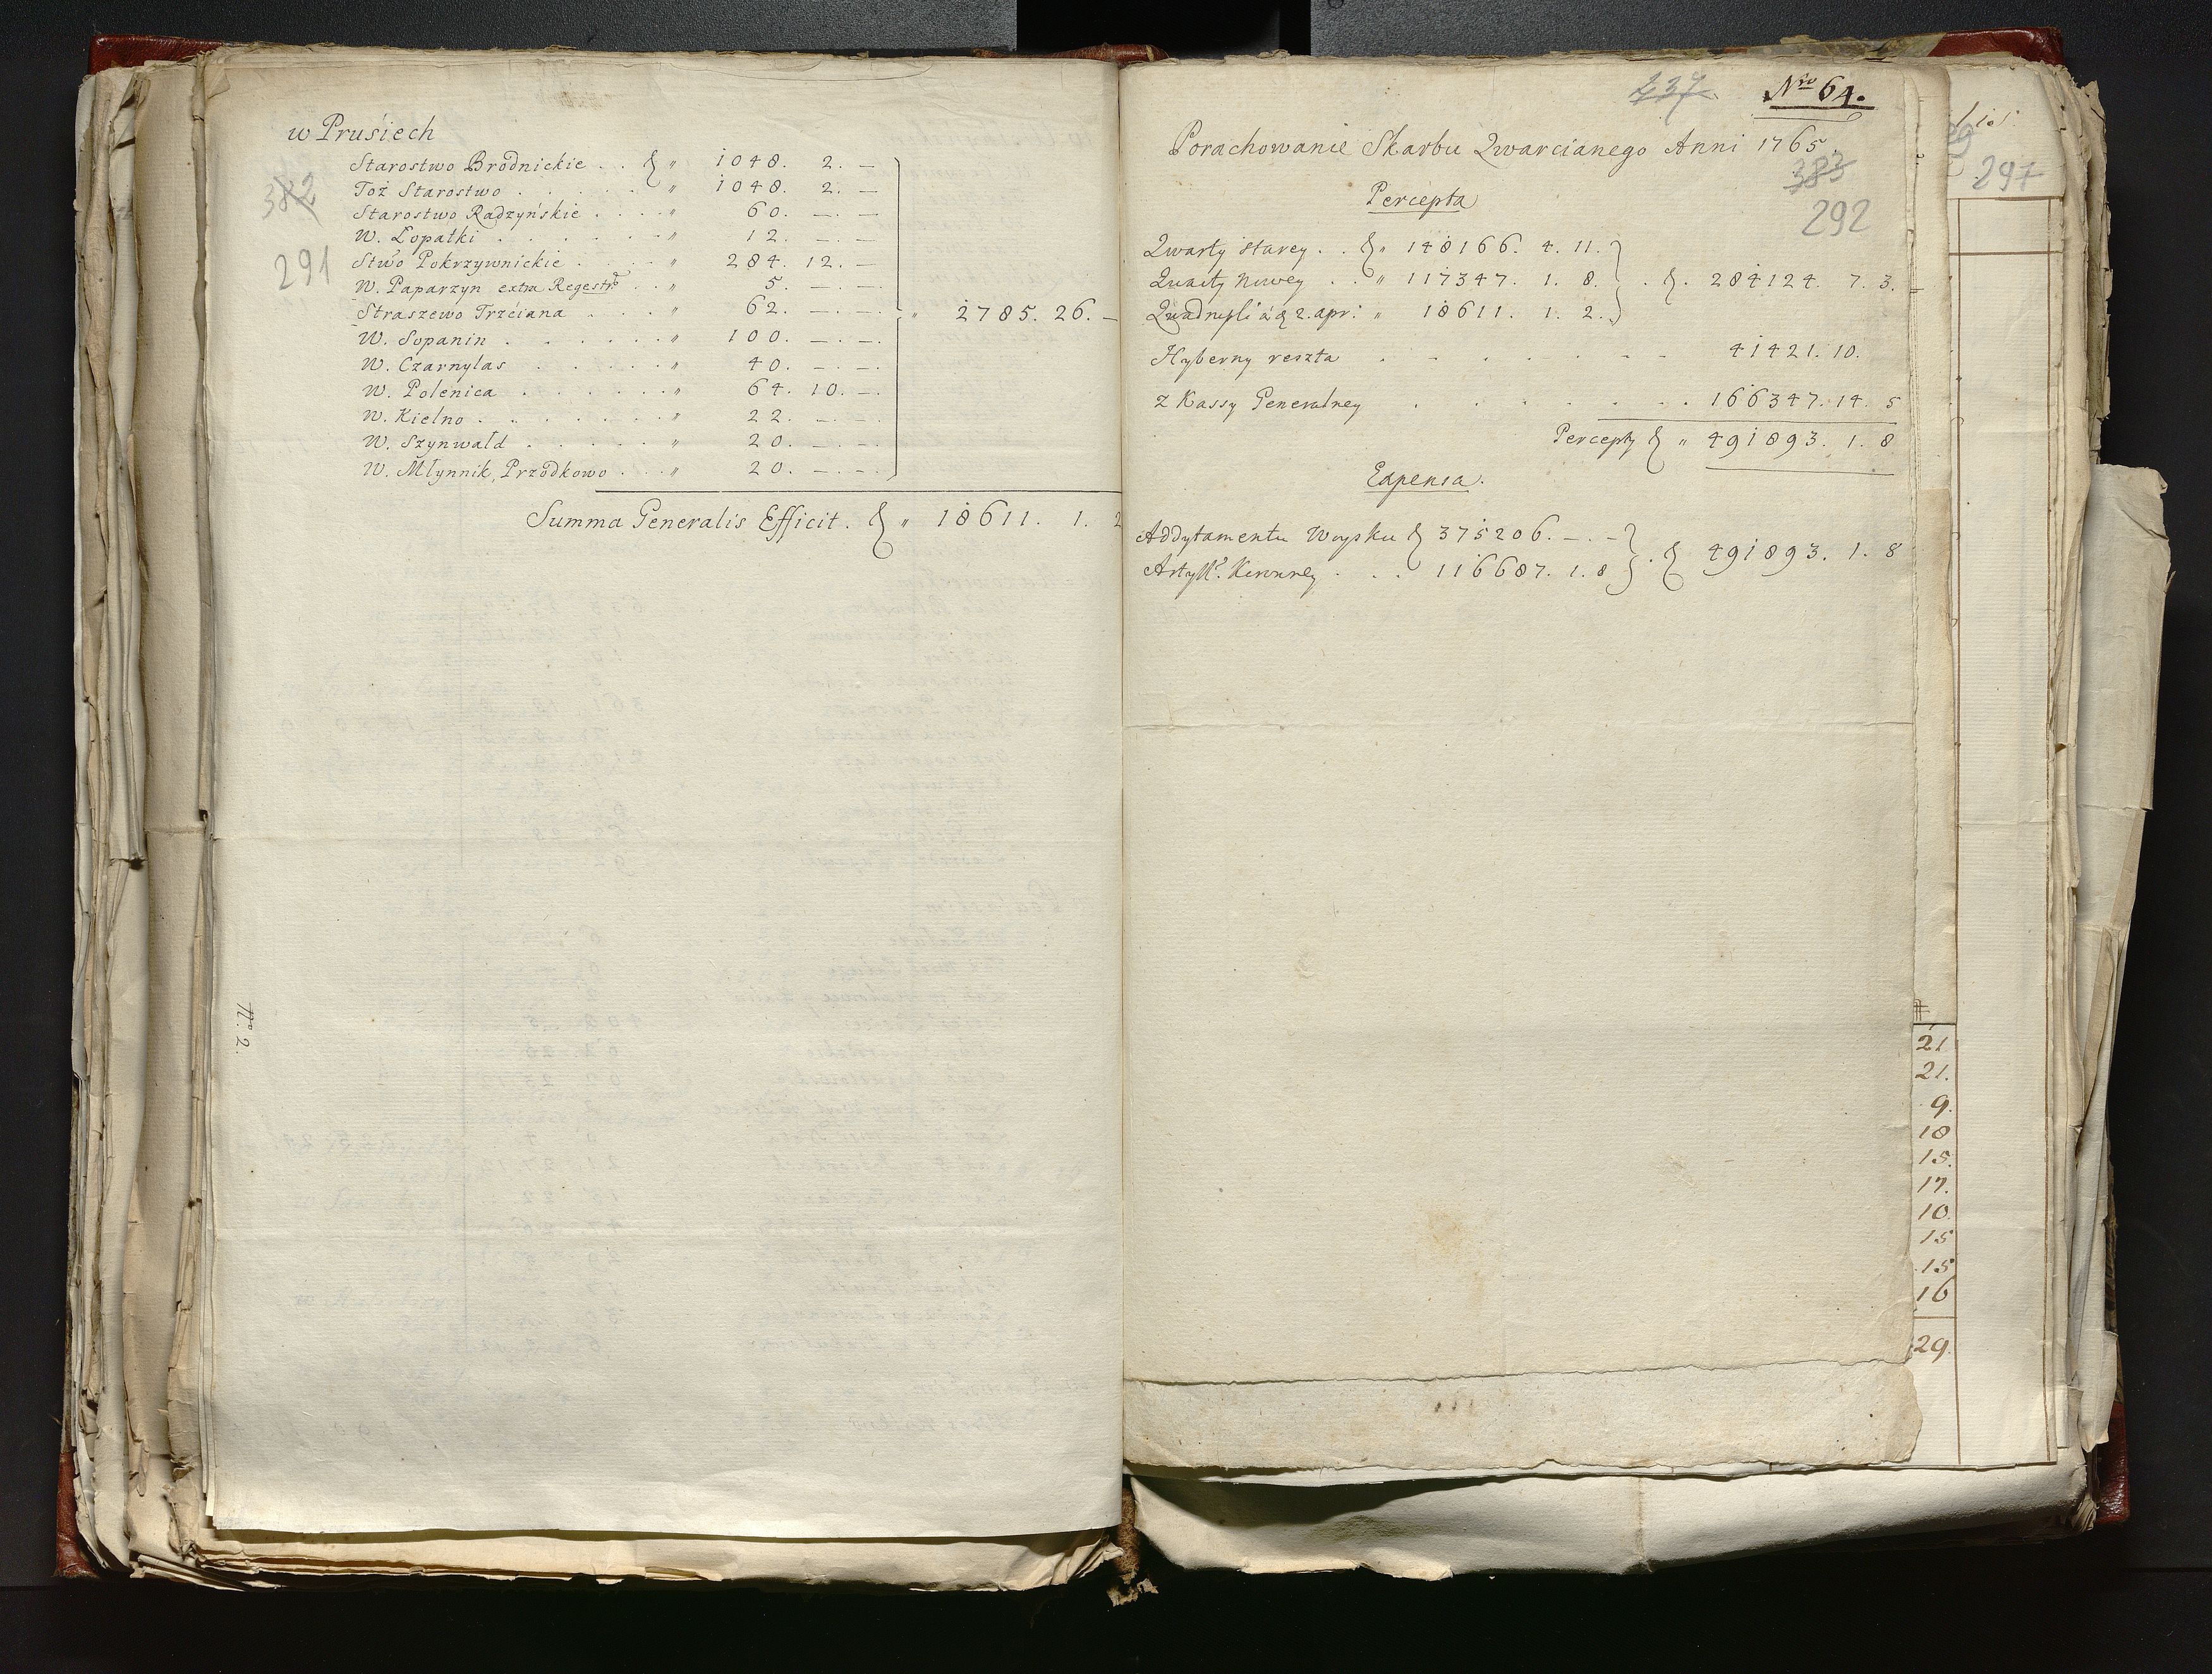 w Prusiech
Starostwo Brodnickie . . " 1048. 2. —
Toż Starostwo . . . . . " 1048. 2. —
382
Starostwo Radzyńskie . . . . " 60. —. —
W. Łopatki . . . . . . " 12. —. —
291
Stwo Pokrzywnickie . . . . " 284. 12. —
W. Paparzyn extra Regestr . . " 5. —. —
Straszewo Trzciana . . . " 62. —. —. " 2785. 26. —
W. Sopanin . . . . . . " 100. —. —.
W. Czarnylas . . . . . " 40. —. —.
W. Polenica . . . . . . " 64. 10. —.
W. Kielno . . . . . . . " 22. —. —.
W. Szynwałd . . . . . " 20. —. —.
W. Młynnik, Przodkowo . . . " 20. —. —.
Summa Generalis Efficit. " 18611. 1. 2
N° 2.
237. Nro 64.
Porachowanie Skarbu Kwarcianego Anni 1765.
383
Percepta
292
Kwarty starey . . " 148166. 4. 11.
Kwarty nowey . . " 117347. 1. 8. . . 284124. 7. 3.
2. apr: " 18611. 1. 2.
Hyberny reszta . . . . . 41421. 10.
z Kassy Generalney . . . . . 166347. 14. 5
Percepty " 491893. 1. 8
Expensa.
Addytamentu Woysku 375206. —. — . 491893. 1. 8
Artyll. . . . 116687. 1. 8
297
21
21.
9.
18
15.
17.
10.
15
15
16
29.